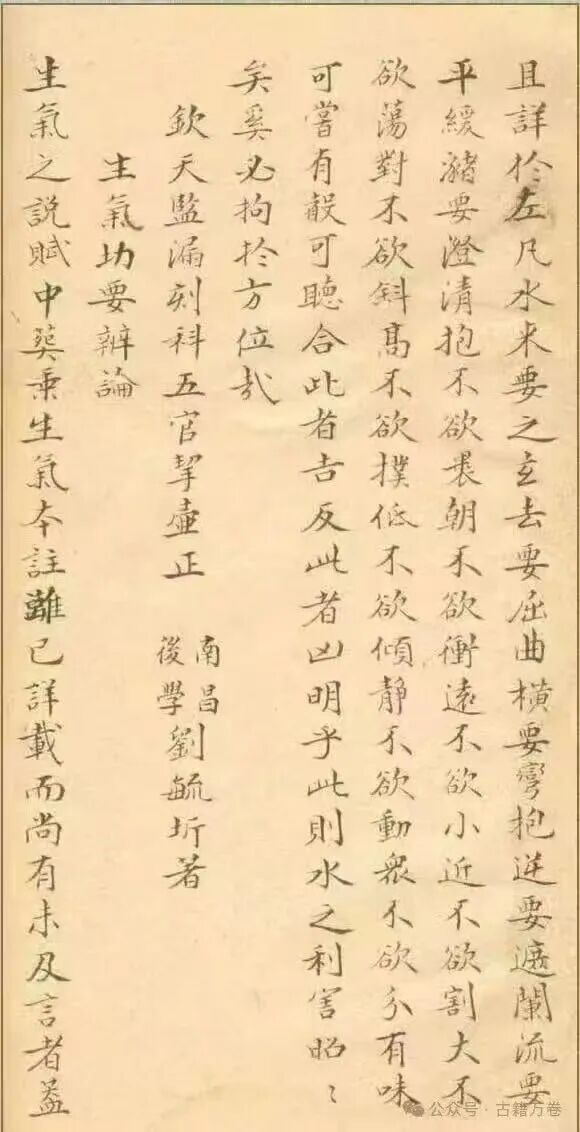 且詳於左凡水来要之玄去要屈曲横要彎抱逆要遮闌流要
平緩瀦要澄清抱不欲裹朝不欲衝遠不欲小近不欲割大不
欲蕩對不欲斜高不欲撲低不欲傾静不欲動衆不欲分有味
可嘗有聲可聴合此者吉反此者凶明乎此則水之利害昭〻
矣奚必拘於方位哉
欽天監漏刻科五官挈壺正 南昌後學劉毓圻著
生氣功要辨論
生氣之説賦中葬乗生氣本註雖已詳載而尚有未及言者蓋
公众号·古籍万卷